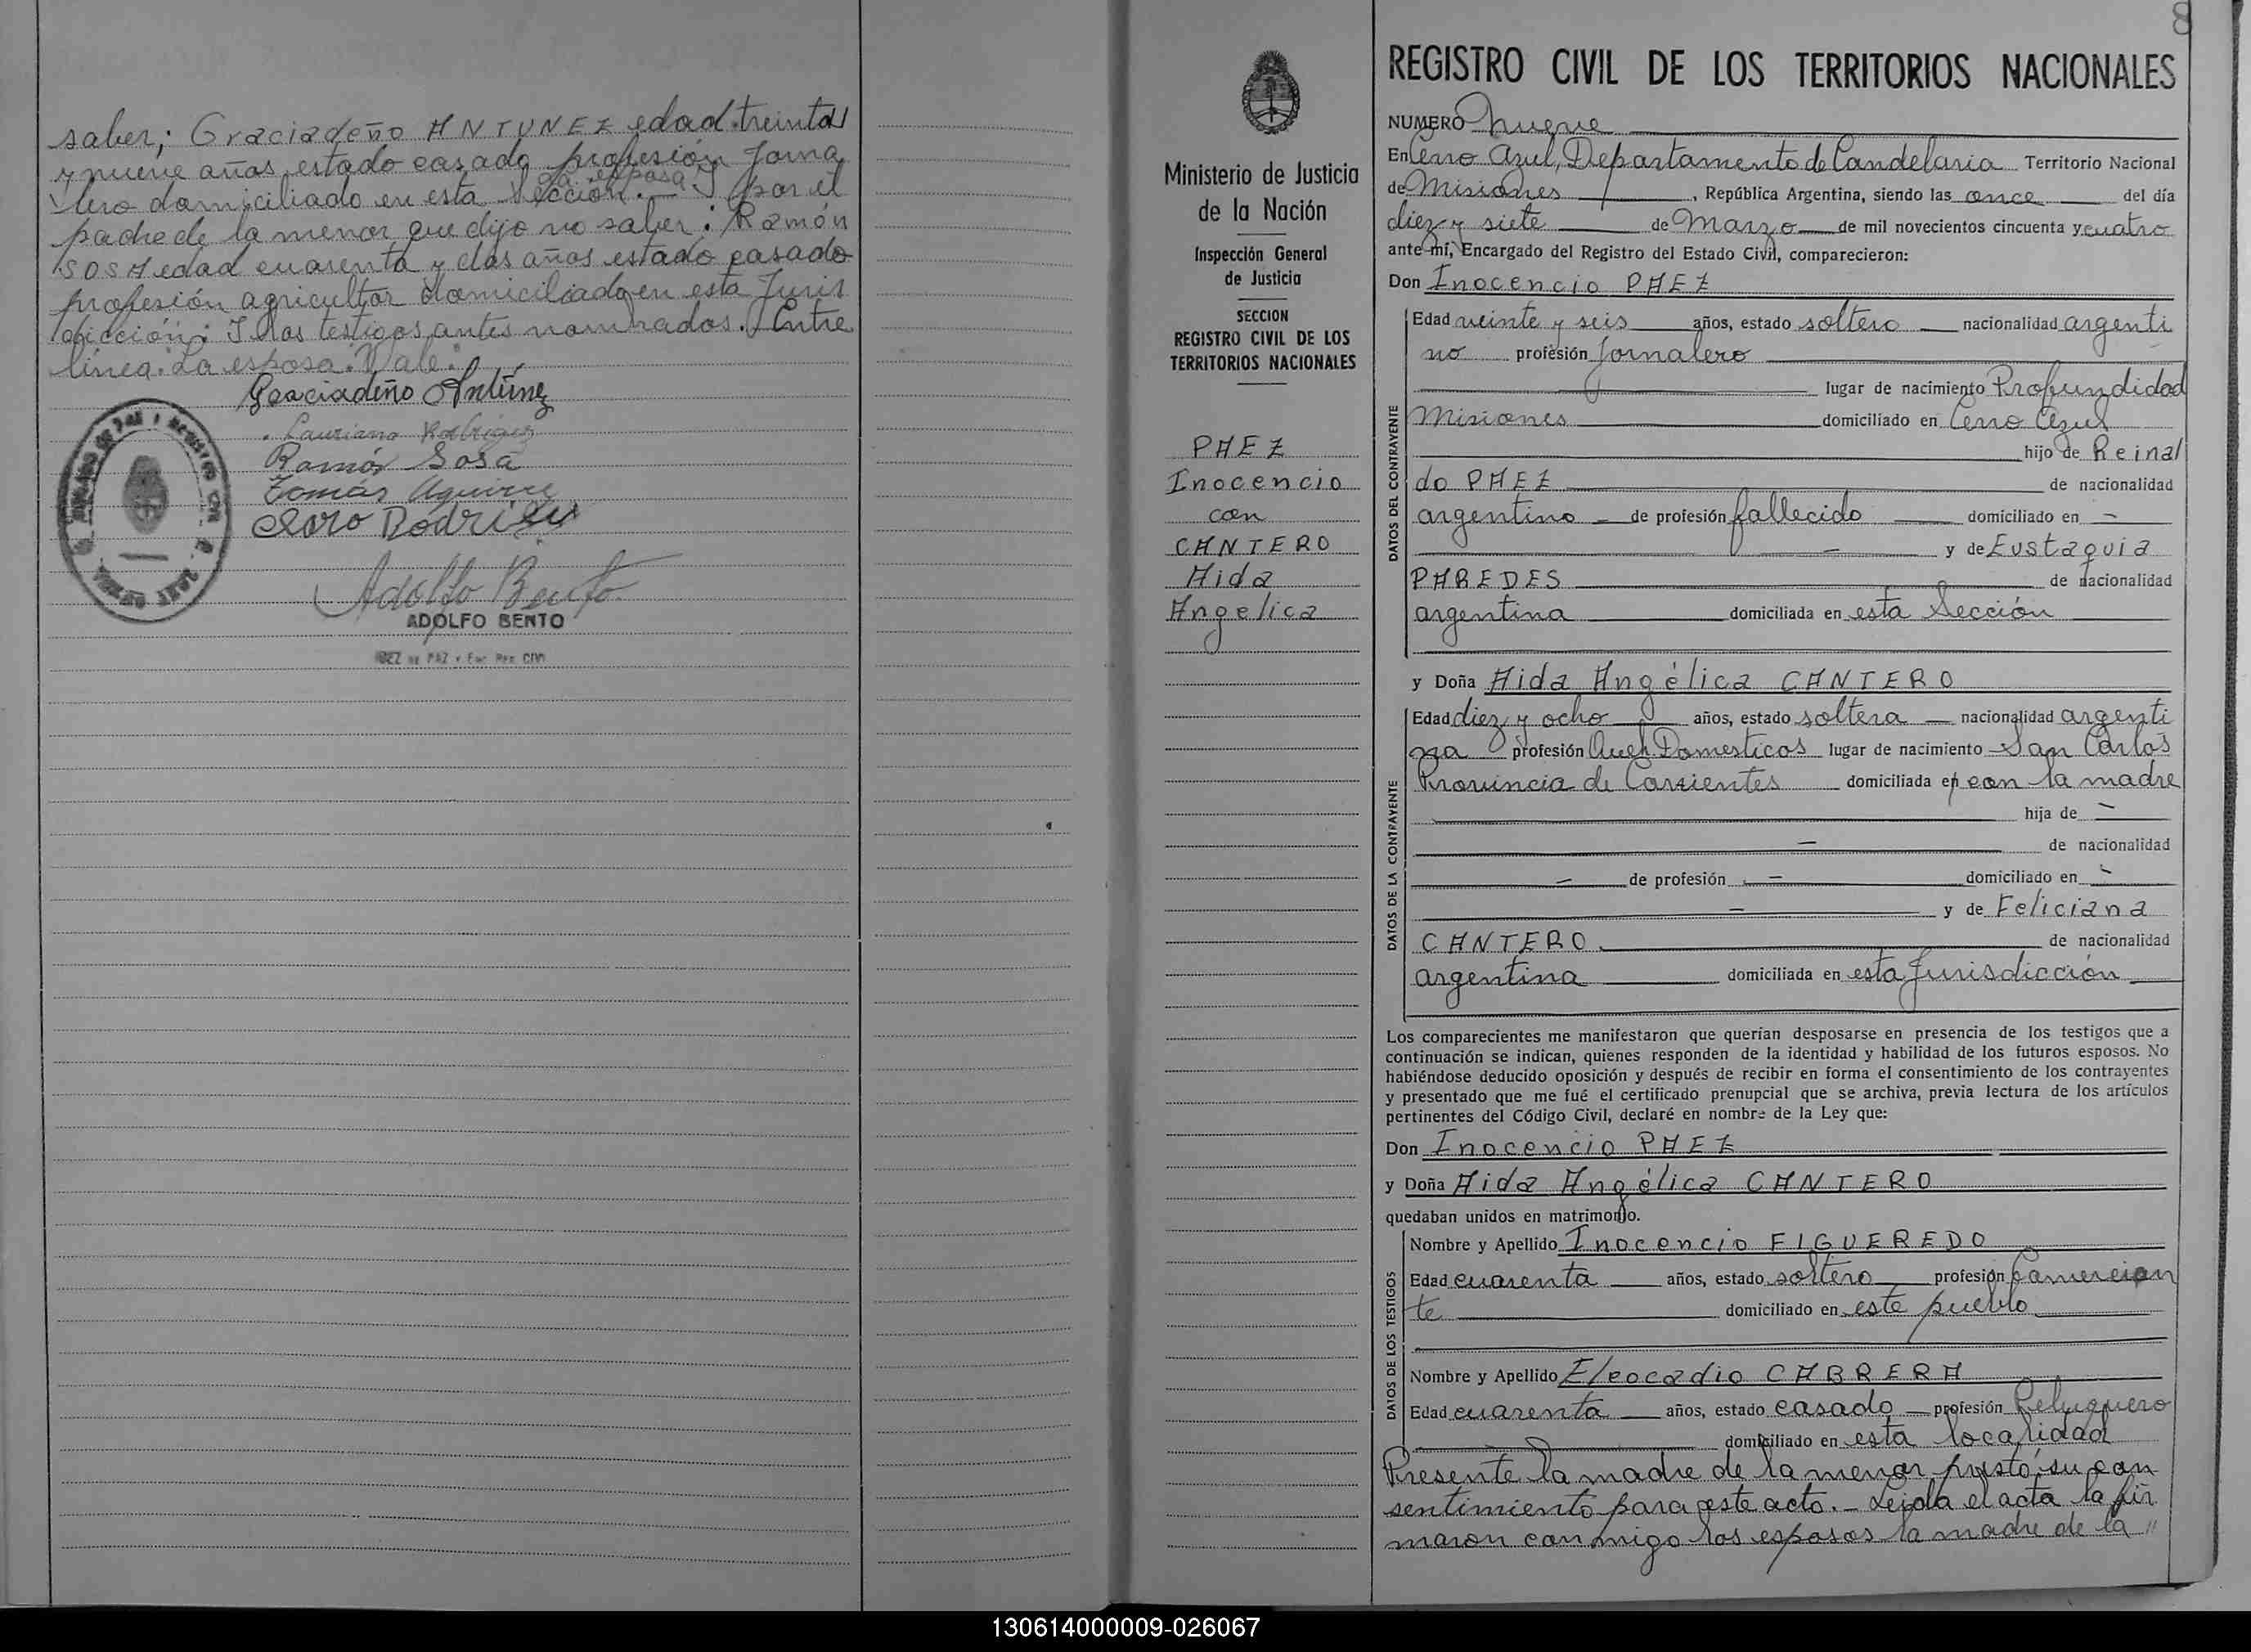 saber; Graciadeño ANTUNEZ edad treinta
y nueve años estado casado profesión Jorna
la esposa
lero domiciliado en esta Sección.- Y por el
padre de la menor que dijo no saber: Ramón
SOSA edad cuarenta y dos años estado casado
profesión agricultor domiciliado en esta Juris
dicción: Y los testigos antes nombrados. Entre
línea: La esposa: Vale:
Graciadeño Antúnez
Lauriano Rodriguez
Ramón Sosa
Tomás Aguirre
ADOLFO BENTO
JUEZ DE PAZ Y Enc. REG. CIVIL
8
REGISTRO CIVIL DE LOS TERRITORIOS NACIONALES
Ministerio de Justicia
de la Nación
Inspección General
de Justicia
SECCION
REGISTRO CIVIL DE LOS
TERRITORIOS NACIONALES
PAEZ
Inocencio
con
CANTERO
Aida
Angelica
NUMERO nueve
En Cerro Azul, Departamento de Candelaria Territorio Nacional
de Misiones, República Argentina, siendo las once del día
diez y siete de Marzo de mil novecientos cincuenta y cuatro
ante mí, Encargado del Registro del Estado Civil, comparecieron:
Don Inocencio PAEZ
DATOS DEL CONTRAYENTE
Edad veinte y seis años, estado soltero nacionalidad argenti
no profesión Jornalero
lugar de nacimiento Profundidad
Misiones domiciliado en Cerro Azul
hijo de Reinal
do PAEZ de nacionalidad
argentino de profesión fallecido domiciliado en -
- y de Eustaquia
PAREDES de nacionalidad
argentina domiciliada en esta Sección
y Doña Aida Angélica CANTERO
DATOS DE LA CONTRAYENTE
Edad diez y ocho años, estado soltera nacionalidad argenti
na profesión Queh Domesticos lugar de nacimiento San Carlos
Provincia de Corrientes domiciliada en con la madre
hija de -
- de nacionalidad
- de profesión - domiciliado en -
- y de Feliciana
CANTERO de nacionalidad
argentina domiciliada en esta Jurisdicción
Los comparecientes me manifestaron que querían desposarse en presencia de los testigos que a
continuación se indican, quienes responden de la identidad y habilidad de los futuros esposos. No
habiéndose deducido oposición y después de recibir en forma el consentimiento de los contrayentes
y presentado que me fué el certificado prenupcial que se archiva, previa lectura de los artículos
pertinentes del Código Civil, declaré en nombre de la Ley que:
Don Inocencio PAEZ
y Doña Aida Angélica CANTERO
quedaban unidos en matrimonio.
DATOS DE LOS TESTIGOS
Nombre y Apellido Inocencio FIGUEREDO
Edad cuarenta años, estado soltero profesión Comercian
te domiciliado en este pueblo
Nombre y Apellido Eleocadio CABRERA
Edad cuarenta años, estado casado profesión Peluquero
domiciliado en esta localidad
Presente la madre de la menor prestó su con
sentimiento para este acto.- Leida el acta la fir
maron conmigo los esposos la madre de la "
130614000009-026067